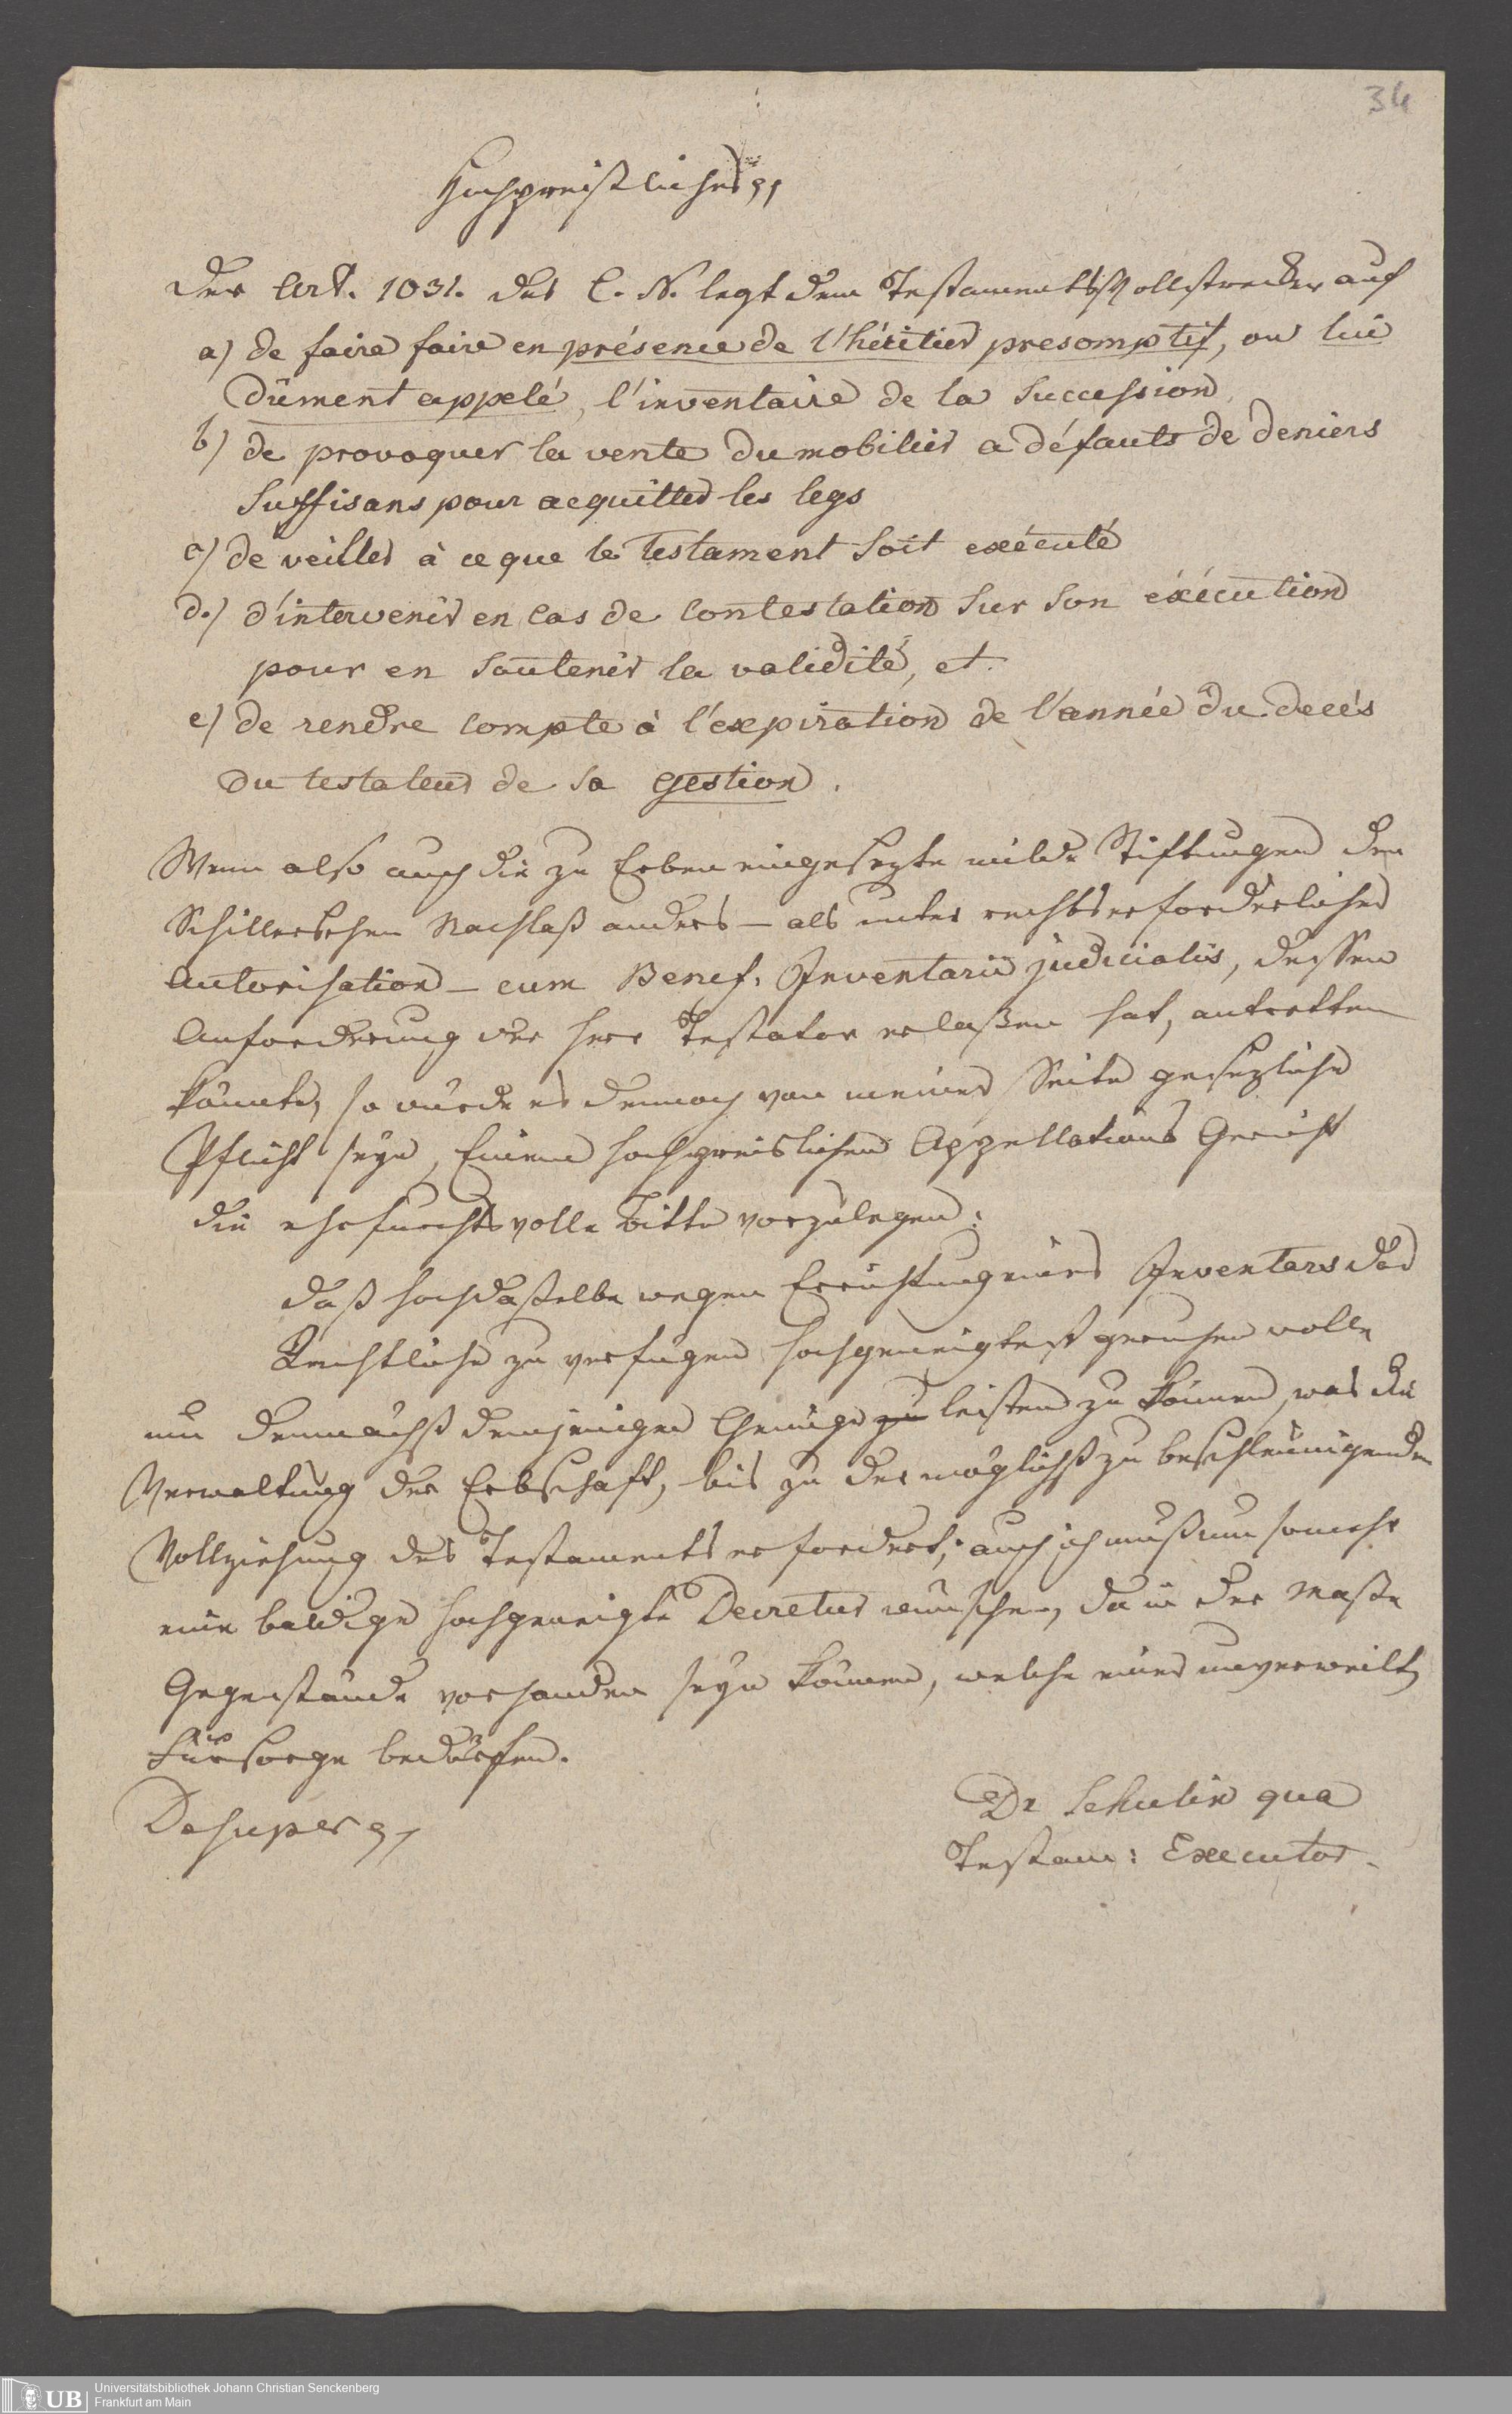 34
Hochpreisliches pp
Der Art. 1031. des C. N. legt dem Testamentsvollstrecker auf
a) de faire faire en présence de l'héritier presomptif, ou lui
dûment appelé, l'inventaire de la Succession,
b) de provoquer la vente du mobilier a défauts de deniers
Suffisans pour acquitter les legs
c) de veiller à ce que le Testament Soit exécuté
d.) d'intervenir en Cas de Contestation Sur Son éxécution
pour en Soutenir la validité, et.
e) de rendre Compte à l'expiration de l'année du decés
du testateur de Sa gestion.
Wenn also auch die zu Erben eingesezte milde Stiftungen den
Schillerschen Nachlaß anders – als unter rechtserforderlicher
Autorisation – cum Benef. Inventarii judicialis, dessen
Anforderung der Herr Testator erlaßen hat, antretten
könnte, so würde es dennoch von meiner Seite gesezliche
Pflicht seyn, Einem hochpreislichen Appellations Gericht
die ehrfurchtsvolle Bitte vorzulegen:
daß hochdaßelbe wegen Errichtung eines Inventars das
Rechtliche zu verfügen hochgeneigtest geruhen wolle
um demnächst demjenigen Genüge zu leisten zu können, was die
Verwaltung der Erbschaft, bis zu der möglichst zu beschleunigenden
Vollziehung des Testaments erfordert; auch ich muß um so mehr
eine baldige hochgeneigte Decretur wünschen, da in der Maße
Gegenstände vorhanden seyn können, welche einer unverweilten
Fürsorge bedürfen.
Desuper pp
Dr Schulin qua
Testam: Executor.
UB
Universitätsbibliothek Johann Christian Senckenberg
Frankfurt am Main